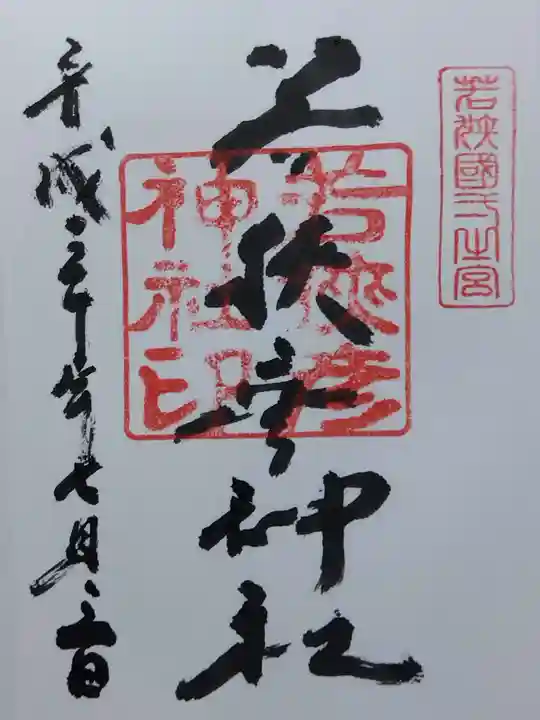 若狭國一之宮
若狭彦神社
若狭彦
神社印
平成三十年七月